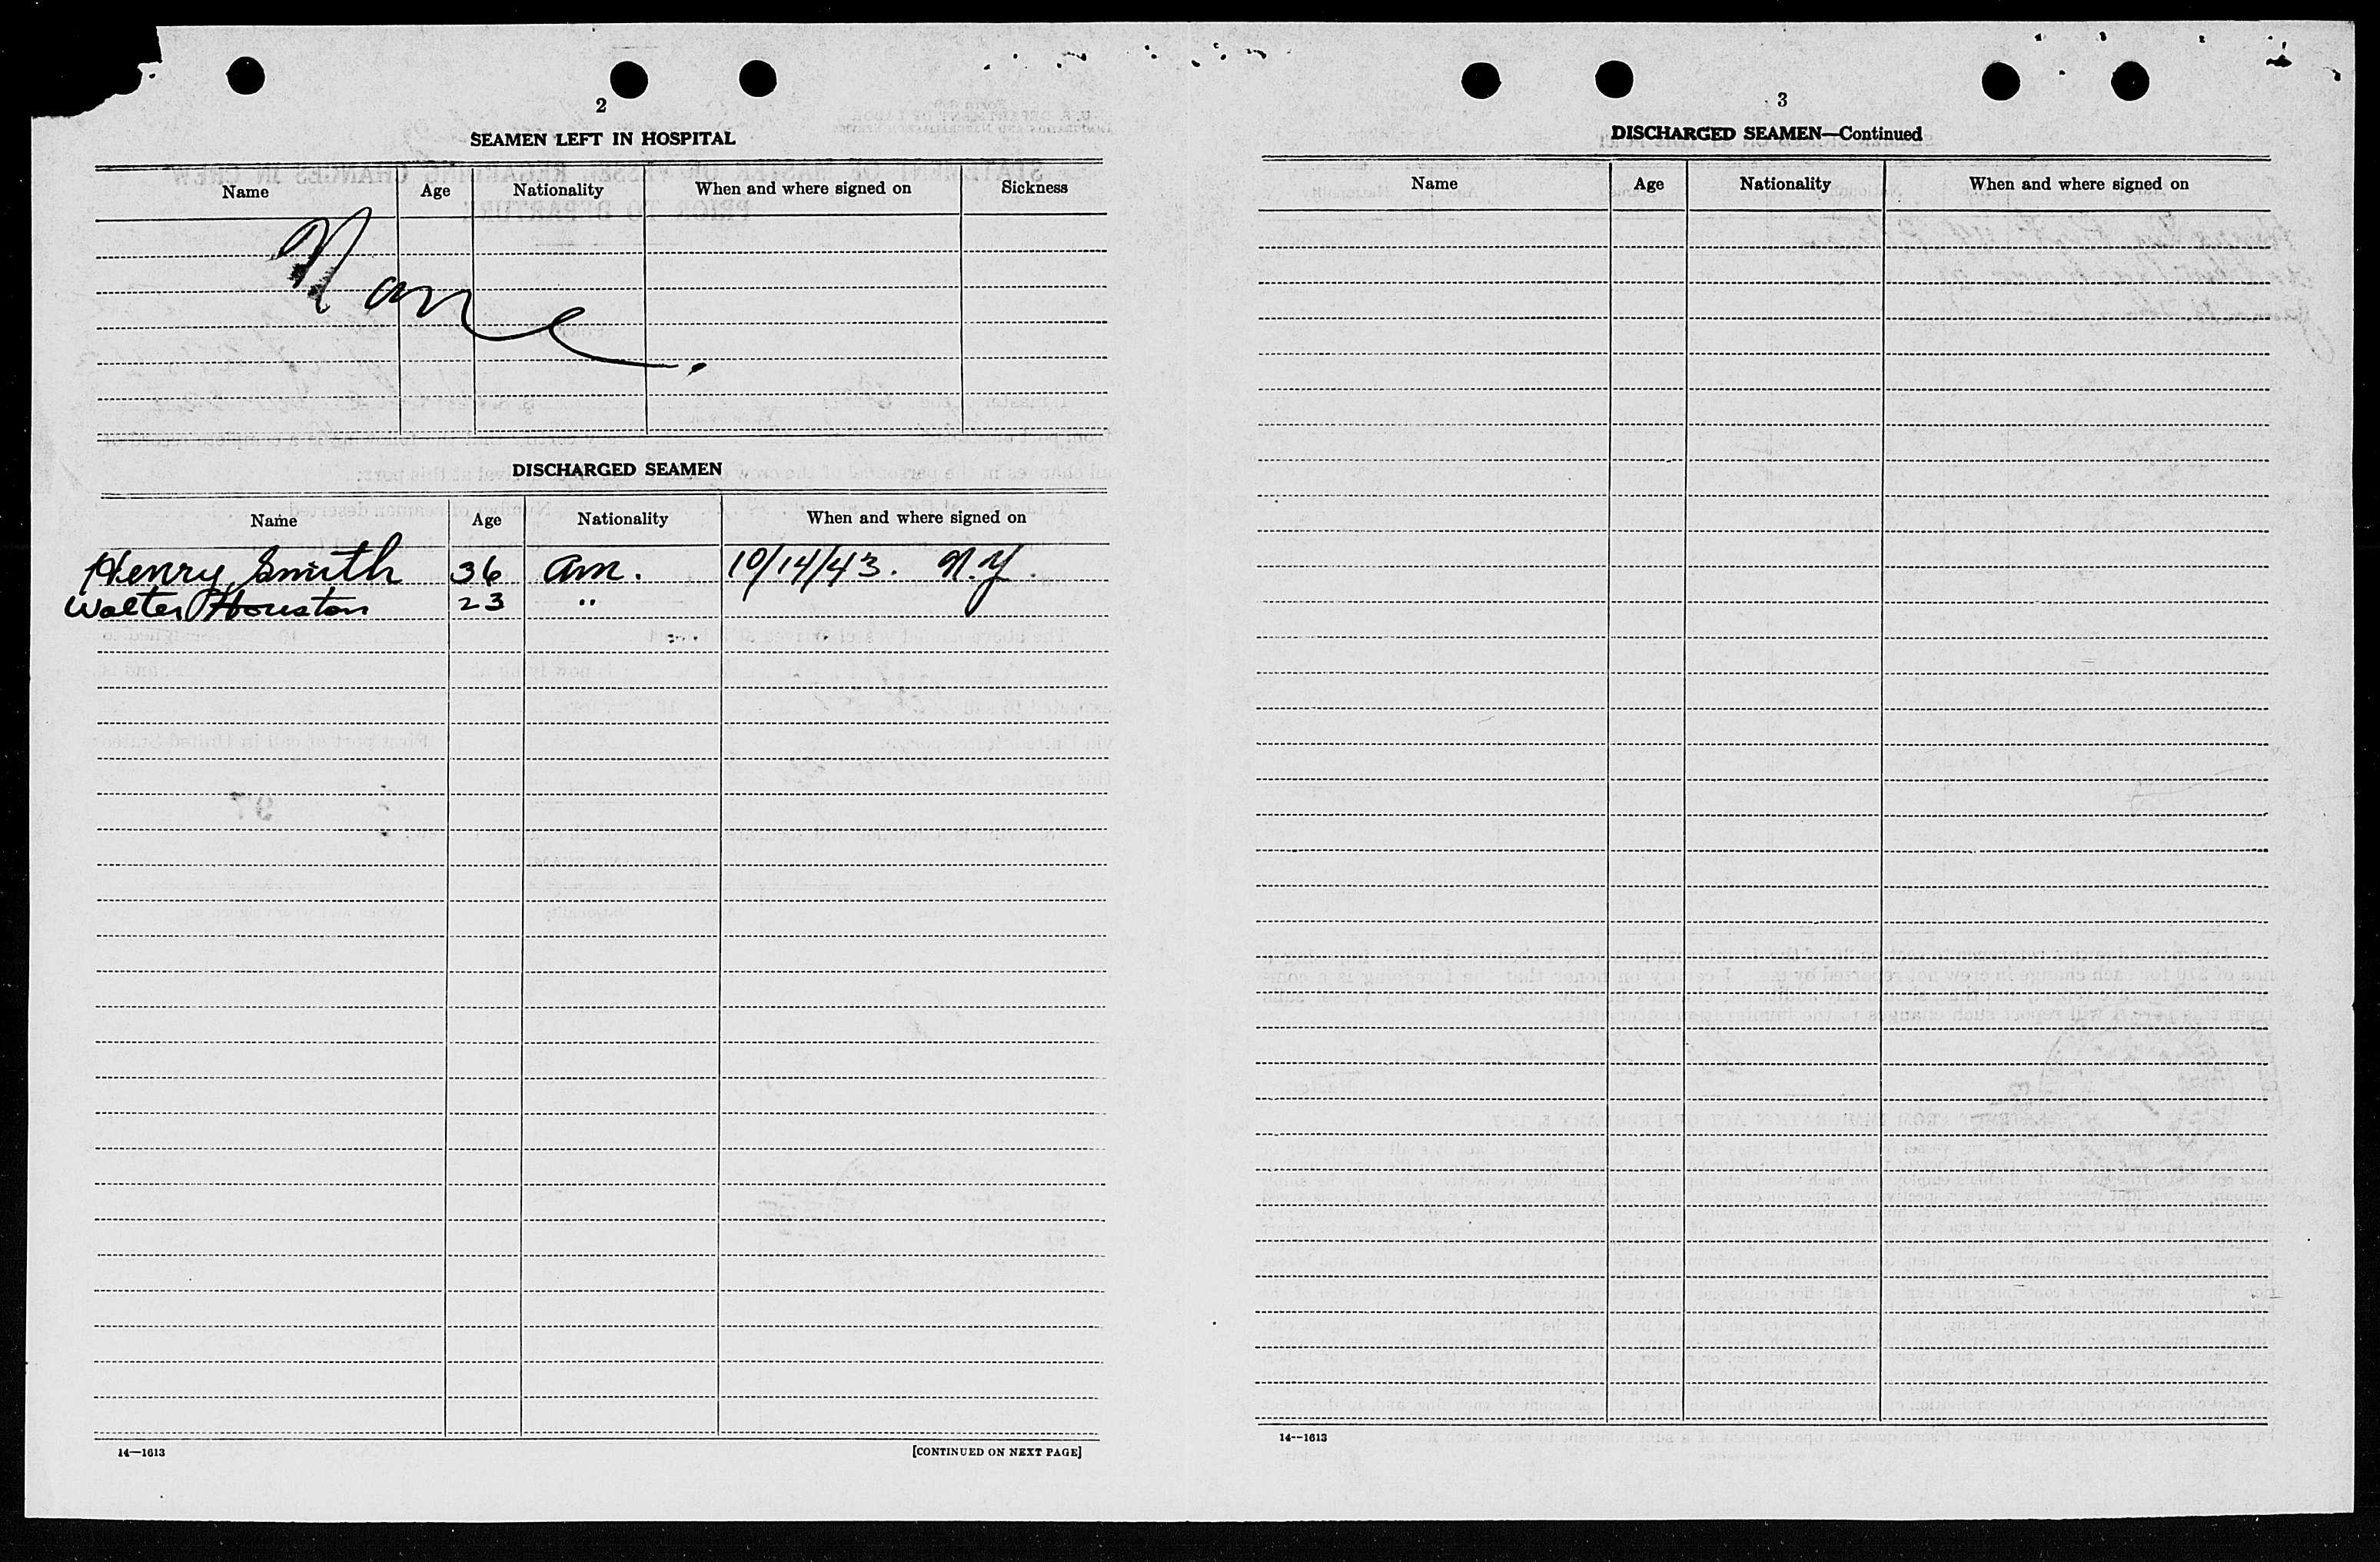 2
SEAMEN LEFT IN HOSPITAL
Name Age Nationality When and where signed on Sickness
None.
DISCHARGED SEAMEN
Name Age Nationality When and where signed on
Henry Smith 36 Am. 10/14/43. N.Y.
Walter Houston 23 "
14—1613
[CONTINUED ON NEXT PAGE]
3
DISCHARGED SEAMEN—Continued
Name Age Nationality When and where signed on
14--1613